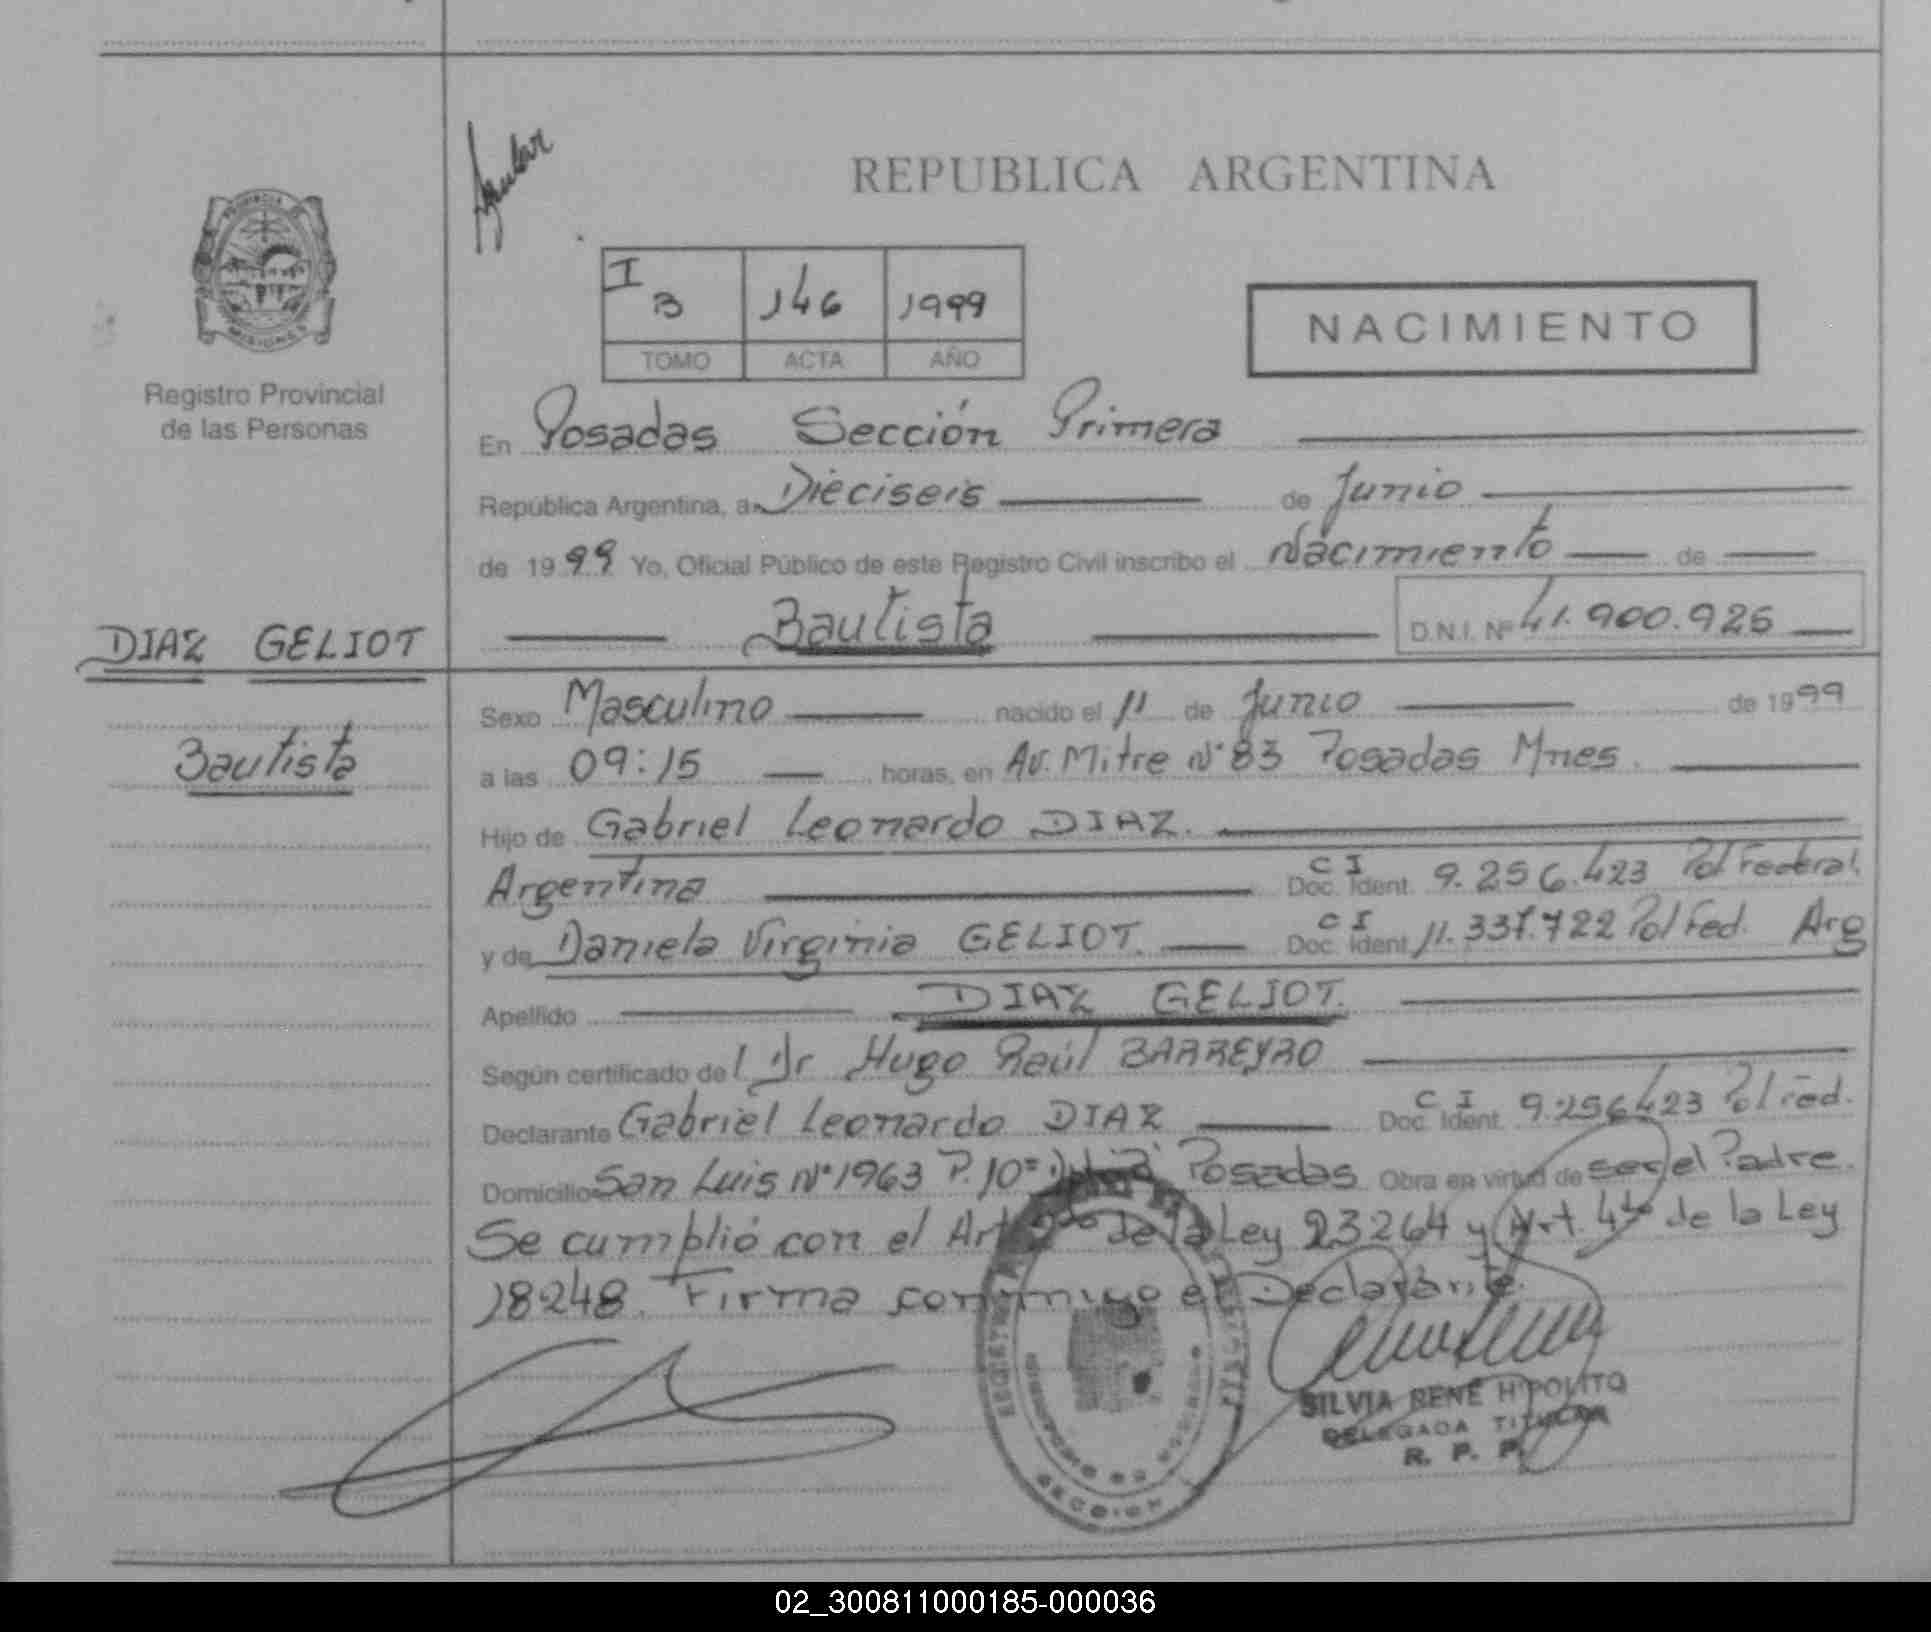 Aguilar
REPUBLICA ARGENTINA
I
B 146 1999
TOMO ACTA AÑO
NACIMIENTO
PROVINCIA DE
MISIONES
Registro Provincial
de las Personas
En Posadas Sección Primera
República Argentina, a Dieciseis de Junio
de 1999 Yo, Oficial Público de este Registro Civil inscribo el Nacimiento de
Bautista D.N.I. Nº 41.900.925
DIAZ GELIOT
Bautista
Sexo Masculino nacido el 11 de Junio de 1999
a las 09:15 horas, en Av. Mitre Nº 83 Posadas Mnes.
Hijo de Gabriel Leonardo DIAZ.
Argentina C I Doc. Ident. 9.256.423 Pol Federal.
y de Daniela Virginia GELIOT. C I Doc. Ident. 11.337.722 Pol Fed. Arg
Apellido DIAZ GELIOT.
Según certificado del Dr Hugo Raúl BARREYRO
Declarante Gabriel Leonardo DIAZ C I Doc. Ident. 9.256423 Pol Fed.
Domicilio San Luis Nº 1963 P. 10º Posadas Obra en virtud de ser el Padre.
Se cumplió con el Art 2do de la Ley 23264 y Art. 4to de la Ley
18248. Firma conmigo el Declarante.
SILVIA RENÉ HIPOLITO
DELEGADA TITULAR
R. P. P.
SECCION
02_300811000185-000036